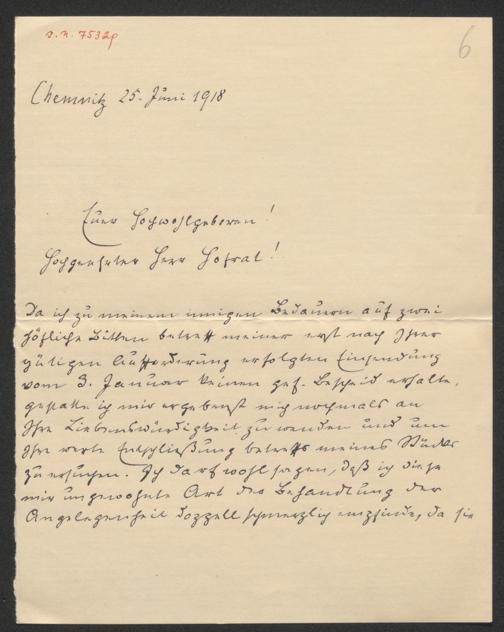 s.n. 7532p
6
Chemnitz 25. Juni 1918
Euer Hochwohlgeboren!
Hochgeehrter Herr Hofrat!
Da ich zu meinem innigen Bedauern auf zwei
höfliche Bitten betreff meiner erst nach Ihrer
gütigen Aufforderung erfolgten Einsendung
vom 3. Januar keinen gef. Bescheid erhalte,
gestatte ich mir ergebenst mich nochmals an
Ihre Liebenswürdigkeit zu wenden und um
Ihre werte Entschließung betreffs meines Stückes
zu ersuchen. Ich darf wohl sagen, daß ich diese
mir ungewohnte Art der Behandlung der
Angelegenheit doppelt schmerzlich empfinde, da sie